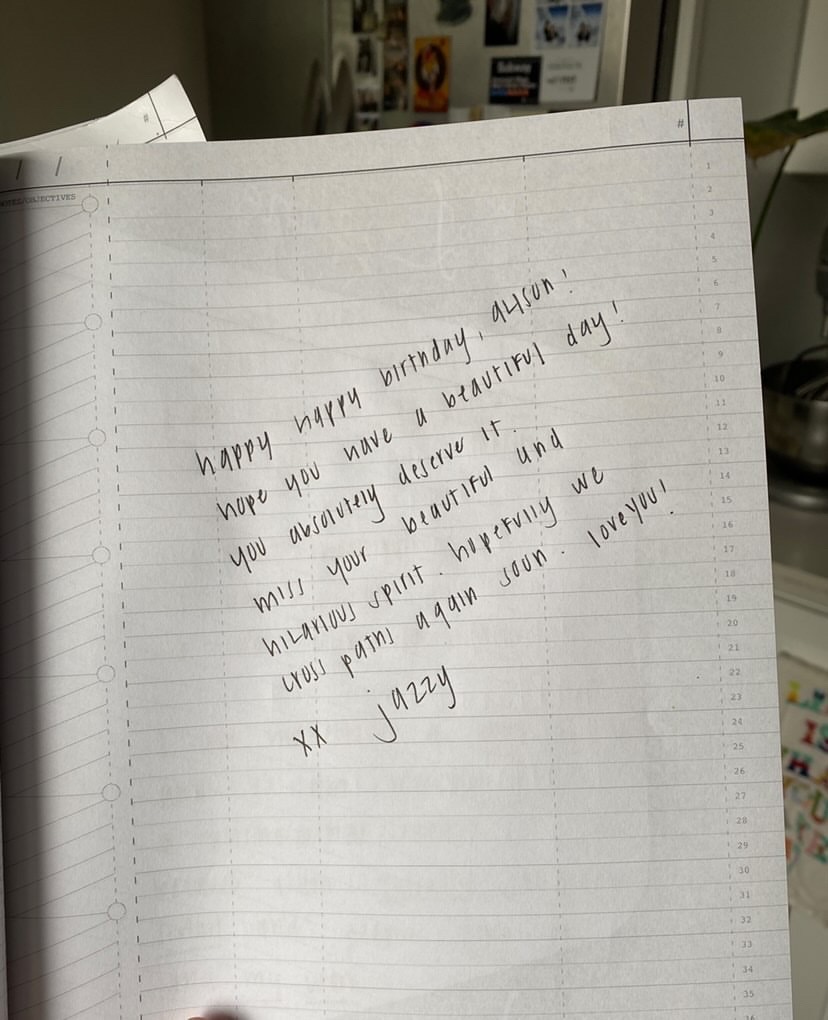 #
#
/ /
NOTES/OBJECTIVES
happy happy birthday, alison!
hope you have a beautiful day!
you absolutely deserve it.
miss your beautiful and
hilarious spirit. hopefully we
cross paths again soon. love you!
xx jazzy
1
2
3
4
5
6
7
8
9
10
11
12
13
14
15
16
17
18
19
20
21
22
23
24
25
26
27
28
29
30
31
32
33
34
35
36